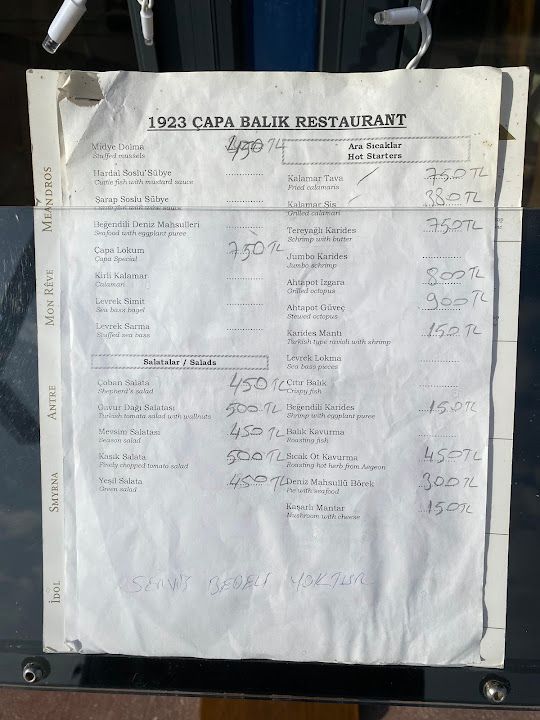 1923 ÇAPA BALIK RESTAURANT
Midye Dolma 450 TL
Stuffed mussels
Hardal Soslu Sübye
Cuttle fish with mustard sauce
Şarap Soslu Sübye
Beğendili Deniz Mahsulleri
Seafood with eggplant puree
Çapa Lokum 750 TL
Çapa Special
Kirli Kalamar
Calamari
Levrek Simit
Sea bass bagel
Levrek Sarma
Stuffed sea bass
Salatalar / Salads
Çoban Salata 450 TL
Shepherd's salad
Gavur Dağı Salatası 500 TL
Turkish tomato salad with wallnuts
Mevsim Salatası 450 TL
Season salad
Kaşık Salata 500 TL
Finely chopped tomato salad
Yeşil Salata 450 TL
Green salad
Ara Sıcaklar
Hot Starters
Kalamar Tava 750 TL
Fried calamaris
Kalamar Şiş 380 TL
Grilled calamari
Tereyağlı Karides 750 TL
Schrimp with butter
Jumbo Karides
Jumbo schrimp
Ahtapot Izgara 800 TL
Grilled octopus
Ahtapot Güveç 900 TL
Stewed octopus
Karides Mantı 150 TL
Turkish type ravioli with shrimp
Levrek Lokma
Sea bass pieces
Çıtır Balık
Crispy fish
Beğendili Karides 150 TL
Shrimp with eggplant puree
Balık Kavurma
Roasting fish
Sıcak Ot Kavurma 450 TL
Roasting hot herb from Aegeon
Deniz Mahsullü Börek 300 TL
Pie with seafood
Kaşarlı Mantar 150 TL
Mushroom with cheese
SERVİS BEDELİ YOKTUR
MEANDROS
MON RÊVE
ANTRE
SMYRNA
İDOL